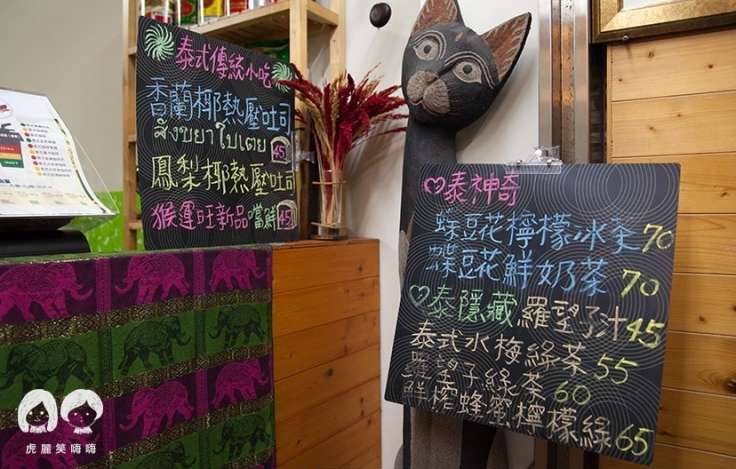 泰式傳統小吃
香蘭椰熱壓吐司
สังขยาใบเตย 45
鳳梨椰熱壓吐司
猴運旺新品嚐鮮 45
♡泰神奇
蝶豆花檸檬冰茶70
蝶豆花鮮奶茶 70
♡泰隱藏 羅望子汁45
泰式水梅綠茶55
羅望子綠茶 60
鮮榨蜂蜜檸檬綠65
虎麗笑嗨嗨